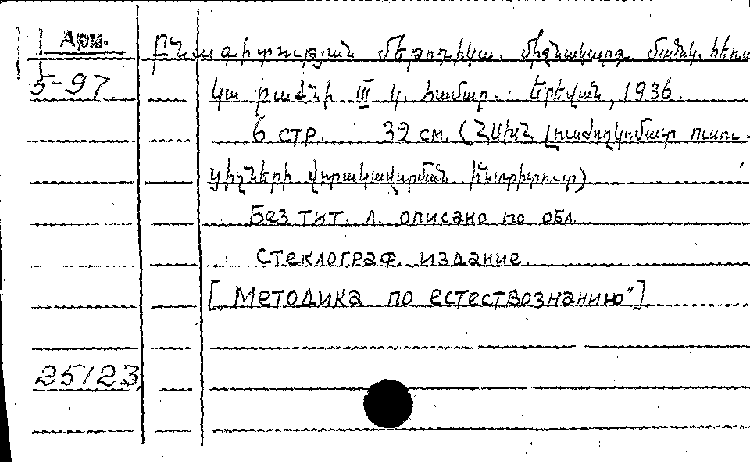 Арм.
5-97
Բնագիտության մեթոդիկա. միջնակարգ մանկ. հեռա
կա բաժնի III կ. համար. Երեվան, 1936.
6 стр. 32 см. (ՀՍԽՀ Լուսժողկոմատ ուսու-
ցիչների վորակավորման ինստիտուտ)
Без тит. л. описано по обл.
Стеклограф. издание.
[„Методика по естествознанию"]
25123